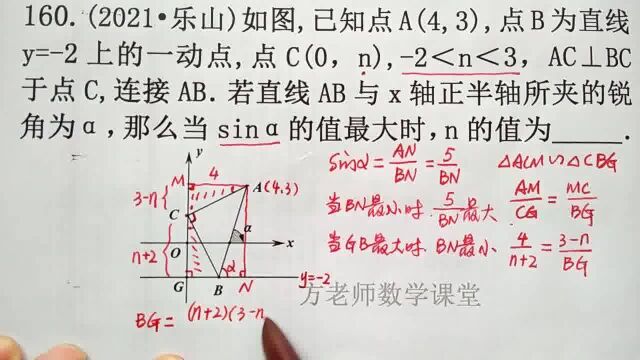 160.(2021•乐山)如图,已知点A(4,3),点B为直线
y=-2上的一动点,点C(0,n),-2<n<3,AC⊥BC
于点C,连接AB.若直线AB与x轴正半轴所夹的锐
角为α,那么当sinα的值最大时,n的值为____.
y
M 4
A(4,3)
3-n
C
n+2
O
α
x
α
G B N
y=-2
sinα=AN/BN=5/BN
△ACM∽△CBG
当BN最小时 5/BN最大
AM/CG=MC/BG
当GB最大时 BN最小
4/n+2=3-n/BG
方老师数学课堂
BG=(n+2)(3-n